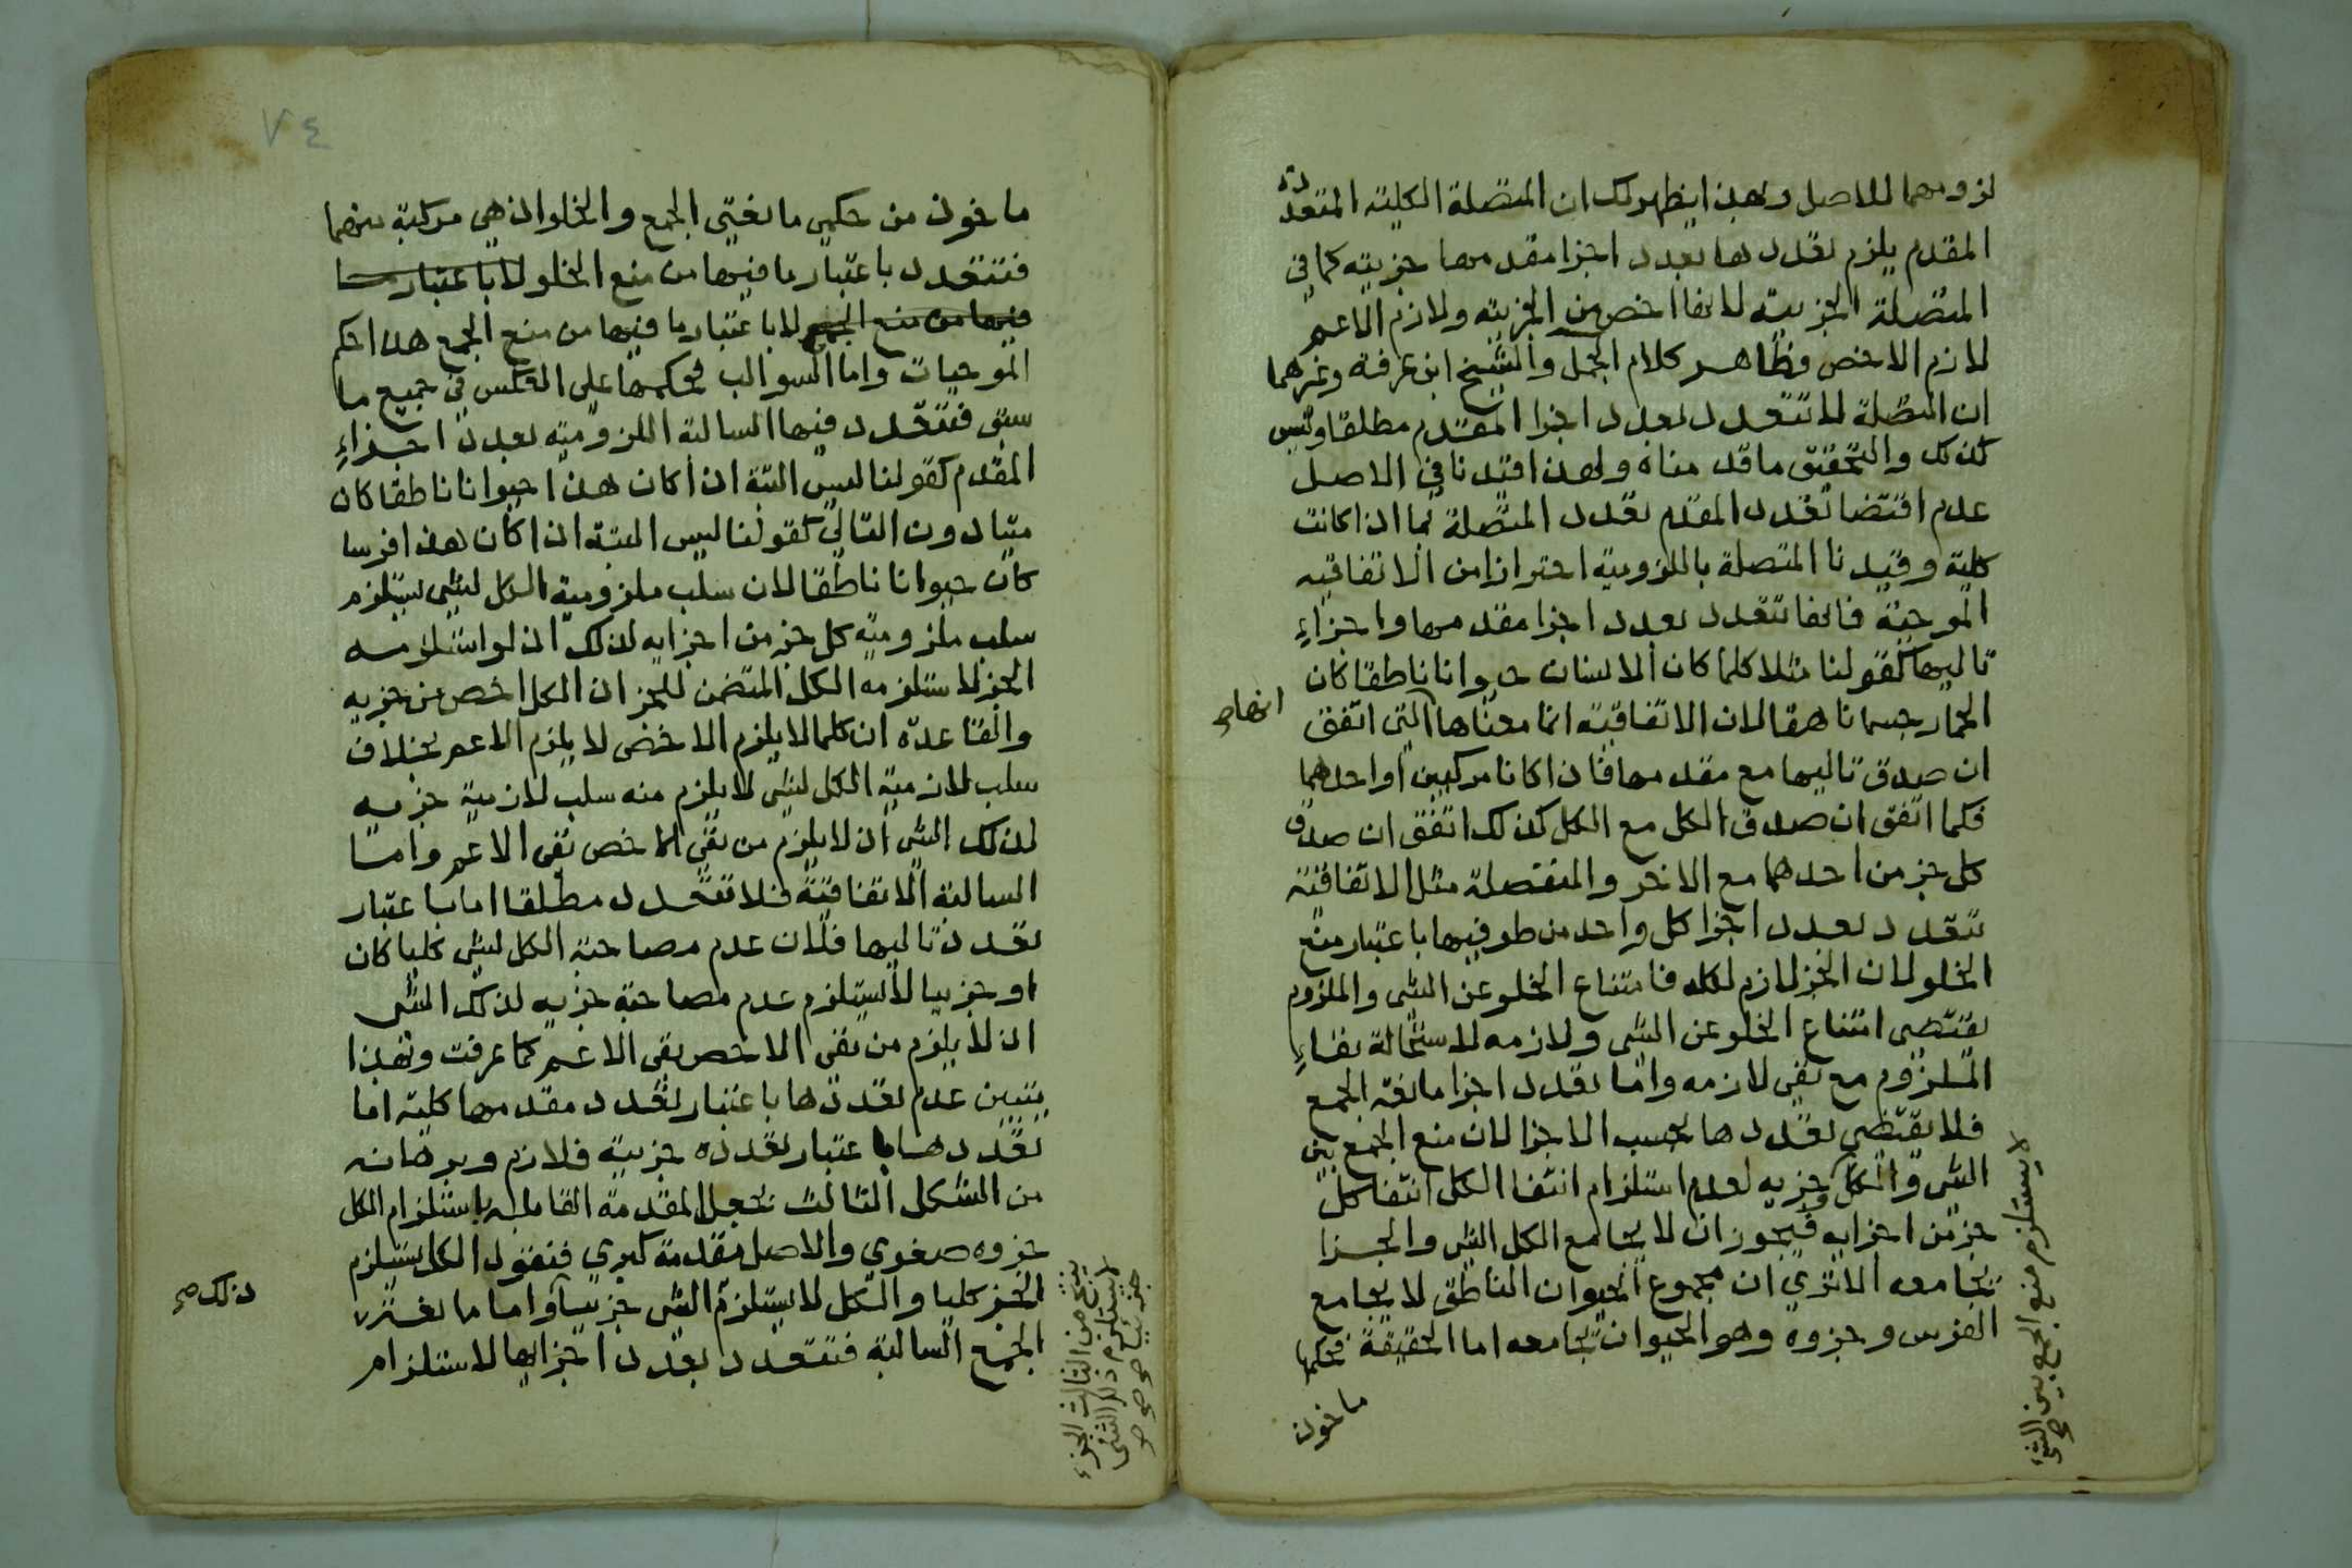 لزومهما للاصل وبهذا يظهر لك ان المتصلة الكلية المتعددة
المقدم يلزم تعددها بعدد اجزا مقدمها جزيية كما في
المتصلة الجزيية لانها اخص من الجزيية ولازم الاعم
لازم الاخص وظاهر كلام الجمل والشيخ ابن عرفة وغيرهما
ان المتصلة لا تتعدد بعدد اجزا المقدم مطلقا وليس
كذلك والتحقيق ما قدمناه ولهذا قيدنا في الاصل
عدم اقتضا تعدد المقدم تعدد المتصلة بما اذا كانت
كلية وقيدنا المتصلة باللزومية احترازا من الاتفاقية
الموجبة فانها تتعدد بعدد اجزا مقدمها واجزاءِ
تاليها كقولنا مثلا كلما كان الانسان حيوانا ناطقا كان
الحمار جسما ناهقا لان الاتفاقية انما معناها التي اتفق
انهاصح
ان صدق تاليها مع مقدمها فاذا كانا مركبين او احدهما
فكما اتفق ان صدق الكل مع الكل كذلك اتفق ان صدق
كل جز من احدهما مع الاخر والمنفصلة مثل الاتفاقية
تتعدد بعدد اجزا كل واحد من طرفيها باعتبار منع
الخلو لان الجز لازم لكله فامتناع الخلو عن الشي والملزوم
يقتضي امتناع الخلو عن الشي ولازمه لاستحالة بقاءِ
الملزوم مع نفي لازمه واما تعدد اجزا مانعة الجمع
فلا يقتضي تعددها بحسب الاجزا لان منع الجمع بين
الشي والكل وجزيه لعدم استلزام انتفا الكل انتفا كل
جز من اجزايه فيجوز ان لا يجامع الكل الشي والجزا
تجامعه الا تري ان مجموع الحيوان الناطق لا يجامع
الفرس وجزوه وهو الحيوان يجامعه اما الحقيقة فحكمها
ماخوذ
لا يستلزم منع الجمع بين الشي صح
٧٤
ماخوذ من حكمي مانعتي الجمع والخلو اذ هي مركبة منهما
فتتعدد باعتبار ما فيها من منع الخلو لا باعتبار ما
فيها من منع الجمع لا باعتبار ما فيها من منع الجمع هذا حكم
الموجبات واما السوالب فحكمها على العكس في جميع ما
سبق فتتعدد فيها السالبة اللزومية بعدد اجزاءِ
المقدم كقولنا ليس البتة اذا كان هذا حيوانا ناطقا كان
ميتا دون التالي كقولنا ليس البتة اذا كان هذا فرسا
كان حيوانا ناطقا لان سلب ملزومية الكل لشي يستلزم
سلب ملزومية كل جز من اجزايه لذلك اذ لو استلزمه
الجز لاستلزمه الكل المتضمن للجز اذ الكل اخص من جزيه
والقاعدة ان كلما لا يلزم الاخص لا يلزم الاعم بخلاف
سلب لازمية الكل لشي لا يلزم منه سلب لازمية جزيه
لذلك الشي اذ لا يلزم من نفي الاخص نفي الاعم واما
السالبة الاتفاقية فلا تتعدد مطلقا اما باعتبار
تعدد تاليها فلان عدم مصاحبة الكل لشي كليا كان
او جزييا لا يستلزم عدم مصاحبة جزيه لذلك الشي
اذ لا يلزم من نفي الاخص نفي الاعم كما عرفت وبهذا
يتبين عدم تعددها باعتبار تعدد مقدمها كلية اما
تعددها باعتبار تعدده جزيية فلازم وبرهانه
من الشكل الثالث بجعل المقدمة القايلة باستلزام الكل
جزوه صغري والاصل مقدمة كبري فتقول الكل يستلزم
الجز كليا والكل لا يستلزم الشي جزييا واما مانعة
ذلك صح
الجمع السالبة فتتعدد بعدد اجزايها لاستلزام
ينتج من الثالث الجزء
لا يستلزم ذلك الشي
جزييا صح صح صح